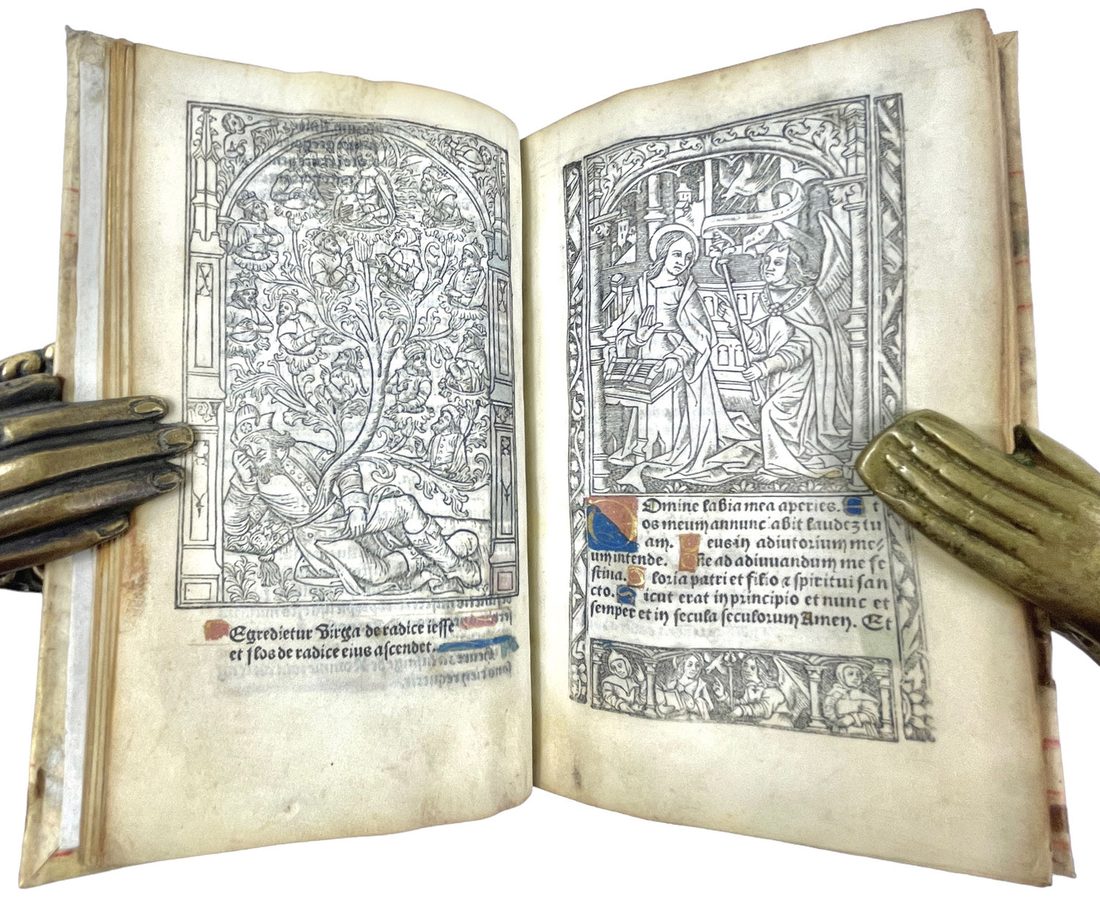 Egredietur Virga de radice iesse
et flos de radice eius ascendet.
Domine labia mea aperies. Et
os meum annunciabit laudez tu
am. Deus in adiutorium me⸗
um intende. Dñe ad adiuuandum me fe
stina. Gloria patri et filio et spiritui san
cto. Sicut erat in principio et nunc et
semper et in secula seculorum Amen. Et